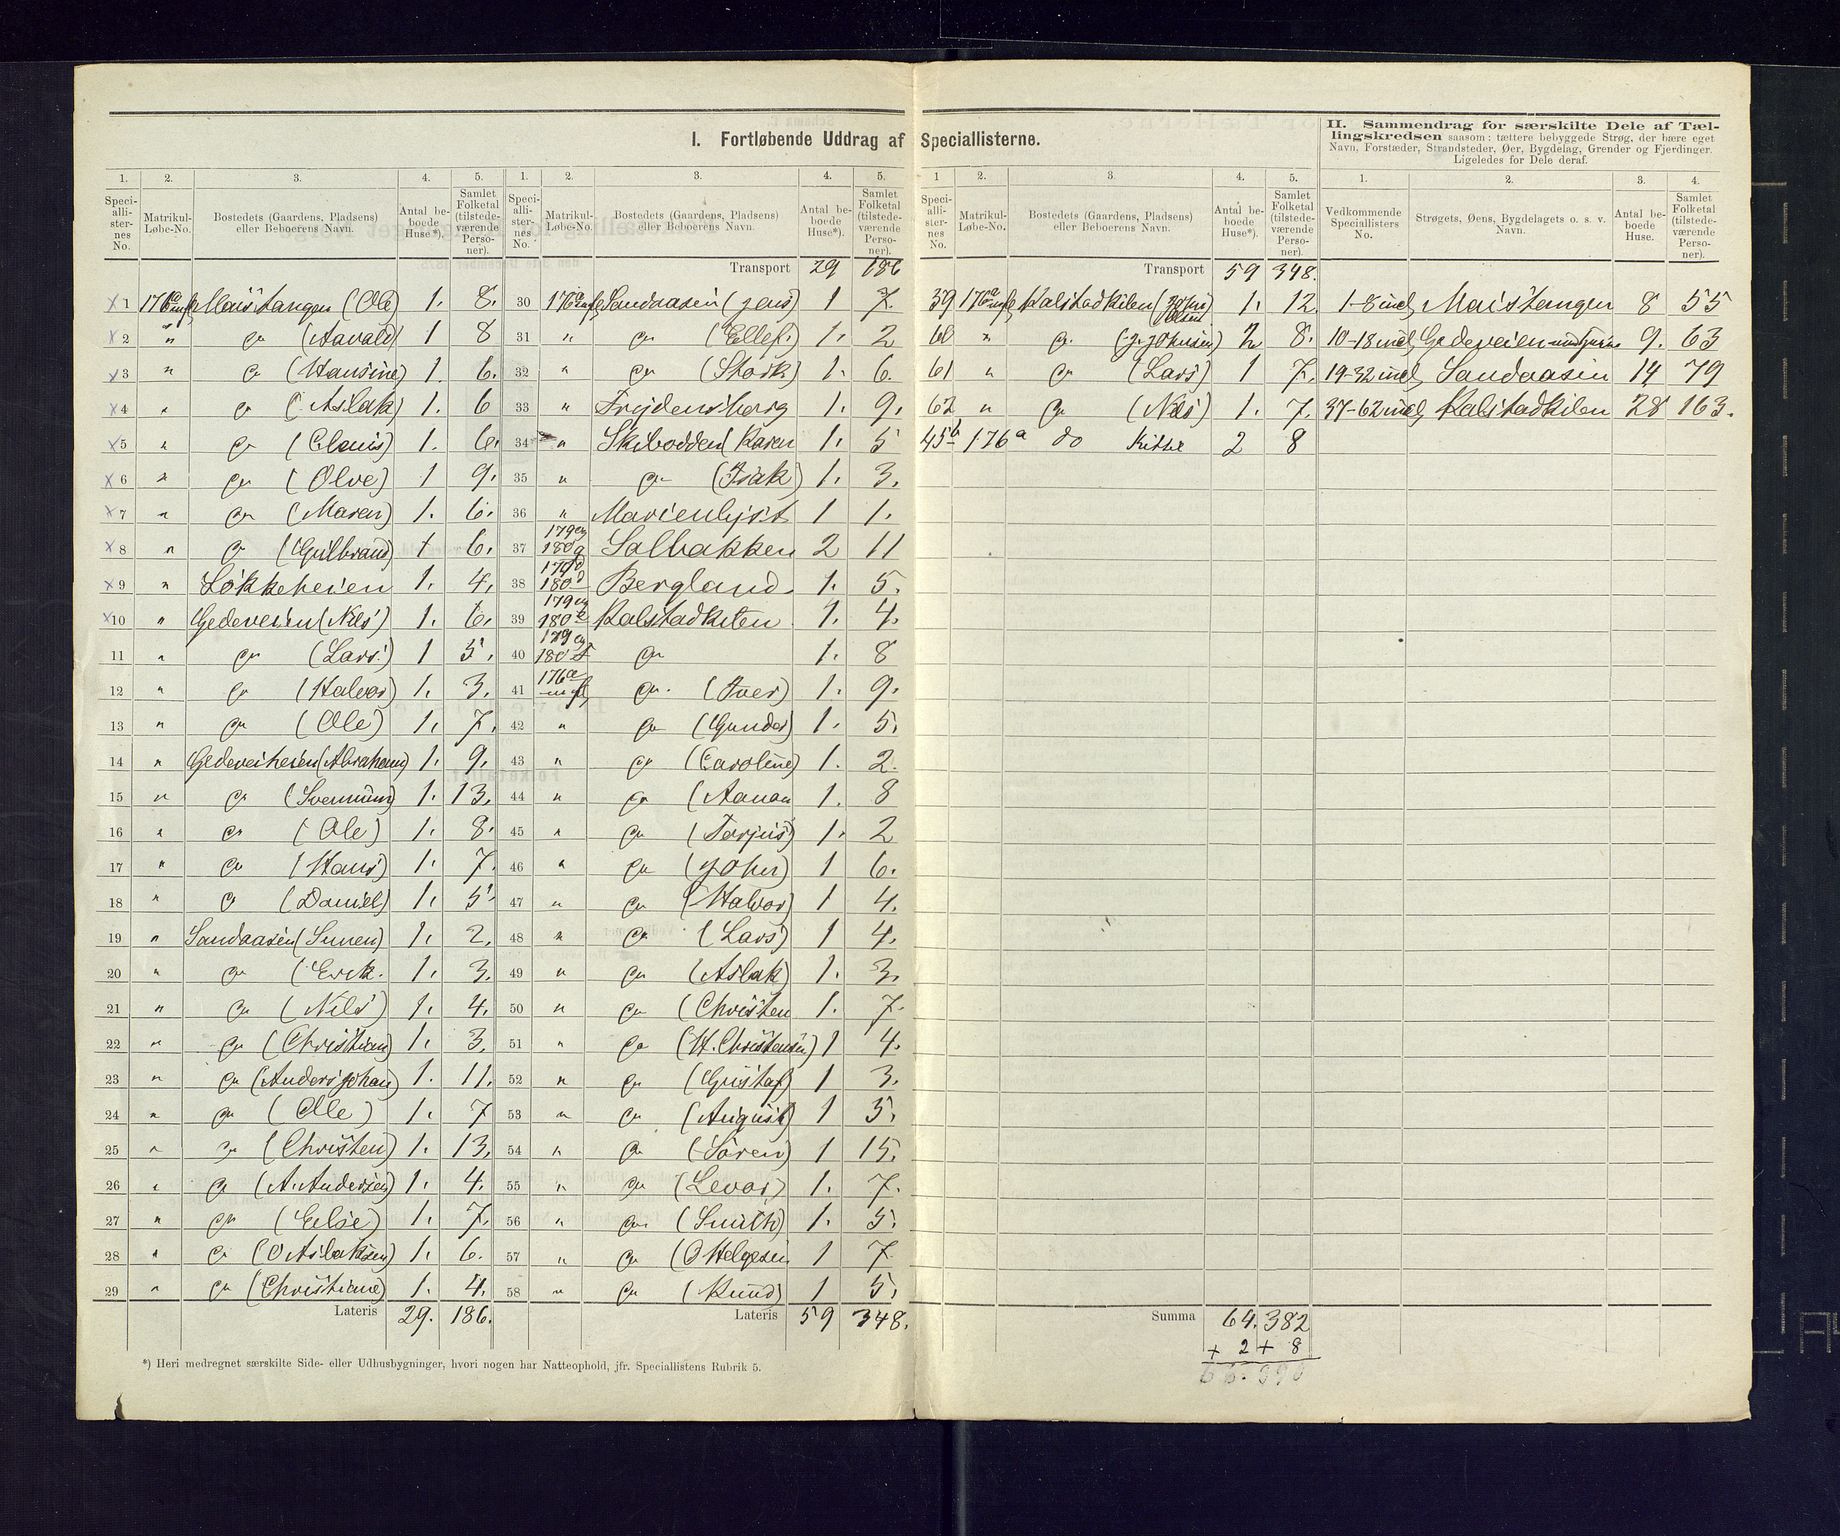 I. Fortløbende Uddrag af Speciallisterne.
II. Sammendrag for særskilte Dele af Tællingskredsen saasom: tættere bebyggede Strøg, der bære eget Navn, Forstæder, Strandsteder, Øer, Bygdelag, Grender og Fjerdinger. Ligeledes for Dele deraf.
1. 2. 3. 4. 5.
Speciallisternes No. Matrikul-Løbe-No. Bostedets (Gaardens, Pladsens) eller Beboerens Navn. Antal beboede Huse*). Samlet Folketal (tilstedeværende Personer).
1 176a m fl Maistangen (Ole) 1. 8.
2 " do (Aavald) 1 8
3 " do (Hansine) 1. 6.
4 " do (Aslak) 1. 6
5 " do (Claus) 1. 6.
6 " do (Olve) 1 9.
7 " do (Maren) 1. 6.
8 " do (Gulbrand) 1 6.
9 " Løkkeheien 1. 4.
10 " Gedeveien (Nils) 1. 6.
11 " do (Lars) 1 5.
12 " do (Halvor) 1. 3.
13 " do (Ole) 1. 7.
14 " Gedeveiheien (Abraham) 1. 9.
15 " do 1. 13.
16 " do (Ole) 1. 8.
17 " do (Hans) 1. 7.
18 " do (Daniel) 1. 5.
19 " Sandaasen 1. 2.
20 " do (Erik. 1. 3.
21 " do (Nils) 1. 4.
22 " do (Christian) 1. 3.
23 " do (Anders Johan) 1. 11.
24 " do (Olle) 1. 7
25 " do (Christen) 1. 13.
26 " do (A. Andersen) 1. 4.
27 " do (Else) 1. 7.
28 " do (O Aslaksen) 1. 6.
29 " do (Christiane) 1. 4.
Lateris 29. 186.
1. 2. 3. 4. 5.
Speciallisternes No. Matrikul-Løbe-No. Bostedets (Gaardens, Pladsens) eller Beboerens Navn. Antal beboede Huse*). Samlet Folketal (tilstedeværende Personer).
Transport 29 186
30 176a m fl Sandaasen (Jens) 1 7.
31 " do (Ellef.) 1. 2
32 " do (Stork) 1. 6.
33 " Frydensberg 1. 9.
34 " Skibodden (Karen 1. 5
35 " do (Isak) 1. 3.
36 " Marienlyst 1 1.
37 179 og 180 g Solbakken 2 11
38 179d 180d Bergland. 1. 5.
39 179 og 180 e Kalstadkilen 1. 4.
40 179 og 180 f do 1. 8
41 176a m fl do. (Iver) 1. 9.
42 " do (Gunder) 1. 5.
43 " do (Caroline) 1. 2.
44 " do (Aanon 1. 8
45 " do (Torjus) 1. 2
46 " do (John) 1 6.
47 " do (Halvor) 1 4.
48 " do (Lars) 1 4.
49 " do (Aslak) 1. 3.
50 " do (Christen 1. 7.
51 " do (H. Christensen) 1 4.
52 " do (Gustaf) 1 3.
53 " do (August) 1 5.
54 " do (Søren) 1 15.
55 " do (Levor) 1. 7.
56 " do (Smith) 1. 5.
57 " do (O Helgesen 1 7
58 " do (Knud) 1 5.
Lateris 59 348.
*) Heri medregnet særskilte Side- eller Udhusbygninger, hvori nogen har Natteophold, jfr. Speciallistens Rubrik 5.
1 2. 3. 4. 5.
Speciallisternes No. Matrikul-Løbe-No. Bostedets (Gaardens, Pladsens) eller Beboerens Navn. Antal beboede Huse*). Samlet Folketal (tilstedeværende Personer).
Transport 59 348.
59 176a m fl Kalstadkilen 1. 12.
60 " do. 2 8.
61 " do (Lars) 1 7.
62 " do (Nils) 1. 7.
45b 176a do Kittil 2 8
Summa 64. 382
+ 2 + 8
66. 390
1. 2. 3. 4.
Vedkommende Speciallisters No. Strøgets, Øens, Bygdelagets o. s. v. Navn. Antal beboede Huse. Samlet Folketal (tilstedeværende Personer).
1-8 incl Maistangen 8 55
10-18 incl Gedeveien 9. 63
19-32 incl Sandaasen 14 79
37-62 incl Kalstadkilen 28 163.